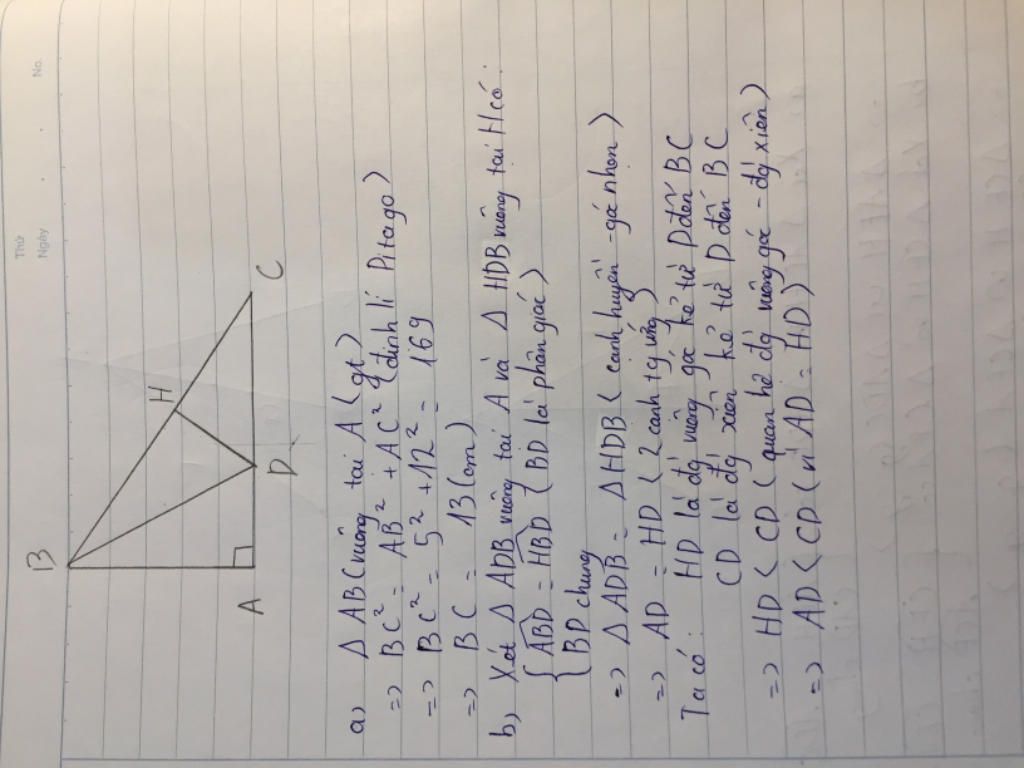 Thứ
Ngày
No.
B
H
A
D
C
a) Δ ABC vuông tại A (gt)
=> BC² = AB² + AC² (định lí Pitago)
=> BC² = 5² + 12² = 169
=> BC = 13 (cm)
b) Xét Δ ADB vuông tại A và Δ HDB vuông tại H có:
{ ABD = HBD (BD là phân giác)
BD chung
=> Δ ADB = Δ HDB (cạnh huyền - góc nhọn)
=> AD = HD (2 cạnh tg ứng)
Ta có: HD là đg vuông góc kẻ từ D đến BC
CD là đg xiên kẻ từ D đến BC
=> HD < CD (quan hệ đg vuông góc - đg xiên)
=> AD < CD (vì AD = HD)